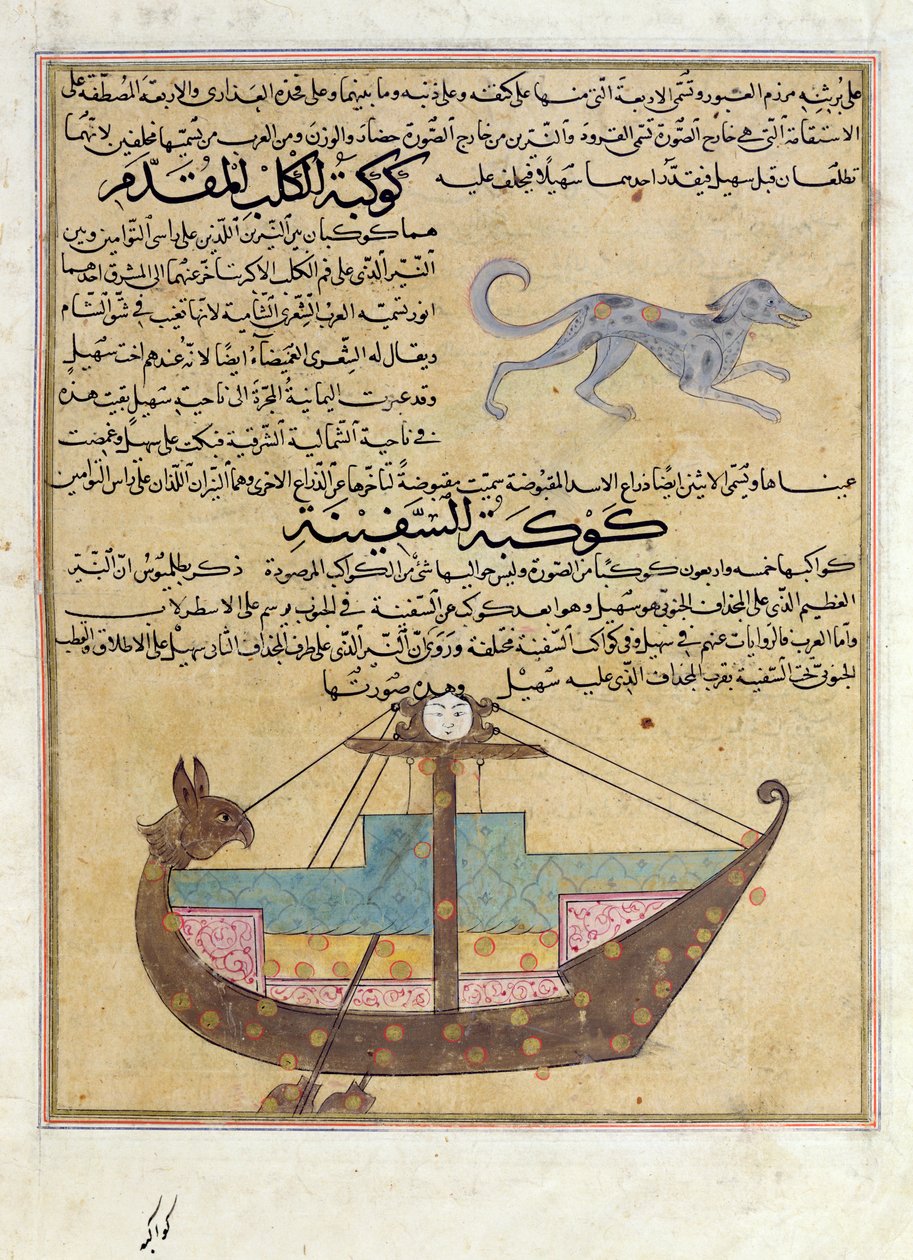 على برثنه مرزم العبور وتسمى الاربعة التى منها على كتفه وعلى ذنبه وما بينهما وعلى فخذه العذارى والاربعة المصطفة على
الاستقامة التى هى خارج الصورة تسمى القرود والنيرين من خارج الصورة حضار والوزن ومن العرب من يسميها محلفين لانهما
تطلعان قبل سهيل فيقدر احدهما سهيلا فيحلف عليه
كوكبة الكلب المقدم
هما كوكبان بين النيرين اللذين على راسى التوامين وبين
النير الذى على فم الكلب الاكبر تتاخر عنهما الى المشرق احدهما
انور تسميه العرب الشعرى الشامية لانها تغيب فى شق الشام
ويقال له الشعرى الغميضاء ايضا لانه عندهم اخت سهيل
وقد عبرت اليمانية المجرة الى ناحية سهيل بقيت هذه
فى ناحية الشمالية الشرقية فبكت على سهيل وغمصت
عيناها ويسمى الاثنين ايضا ذراع الاسد المقبوضة سميت مقبوضة لتاخرها عن الذراع الاخرى وهما النيران اللذان على راس التوامين
كوكبة السفينة
كواكبها خمسه واربعون كوكبا من الصورة وليس حواليها شئ من الكواكب المرصودة ذكر بطلميوس ان النير
العظيم الذى على المجداف الجنوبى هو سهيل وهو ابعد كوكب عن السفينة فى الجنوب يرسم على الاسطرلاب
واما العرب فالروايات عنهم فى سهيل وفى كواكب السفينة مختلفة وروى ان النير الذى على طرف المجداف الثانى سهيل على الاطلاق والقطب
الجنوبى تحت السفينة بقرب المجداف الذى عليه سهيل وهذه صورتها
كواكبه